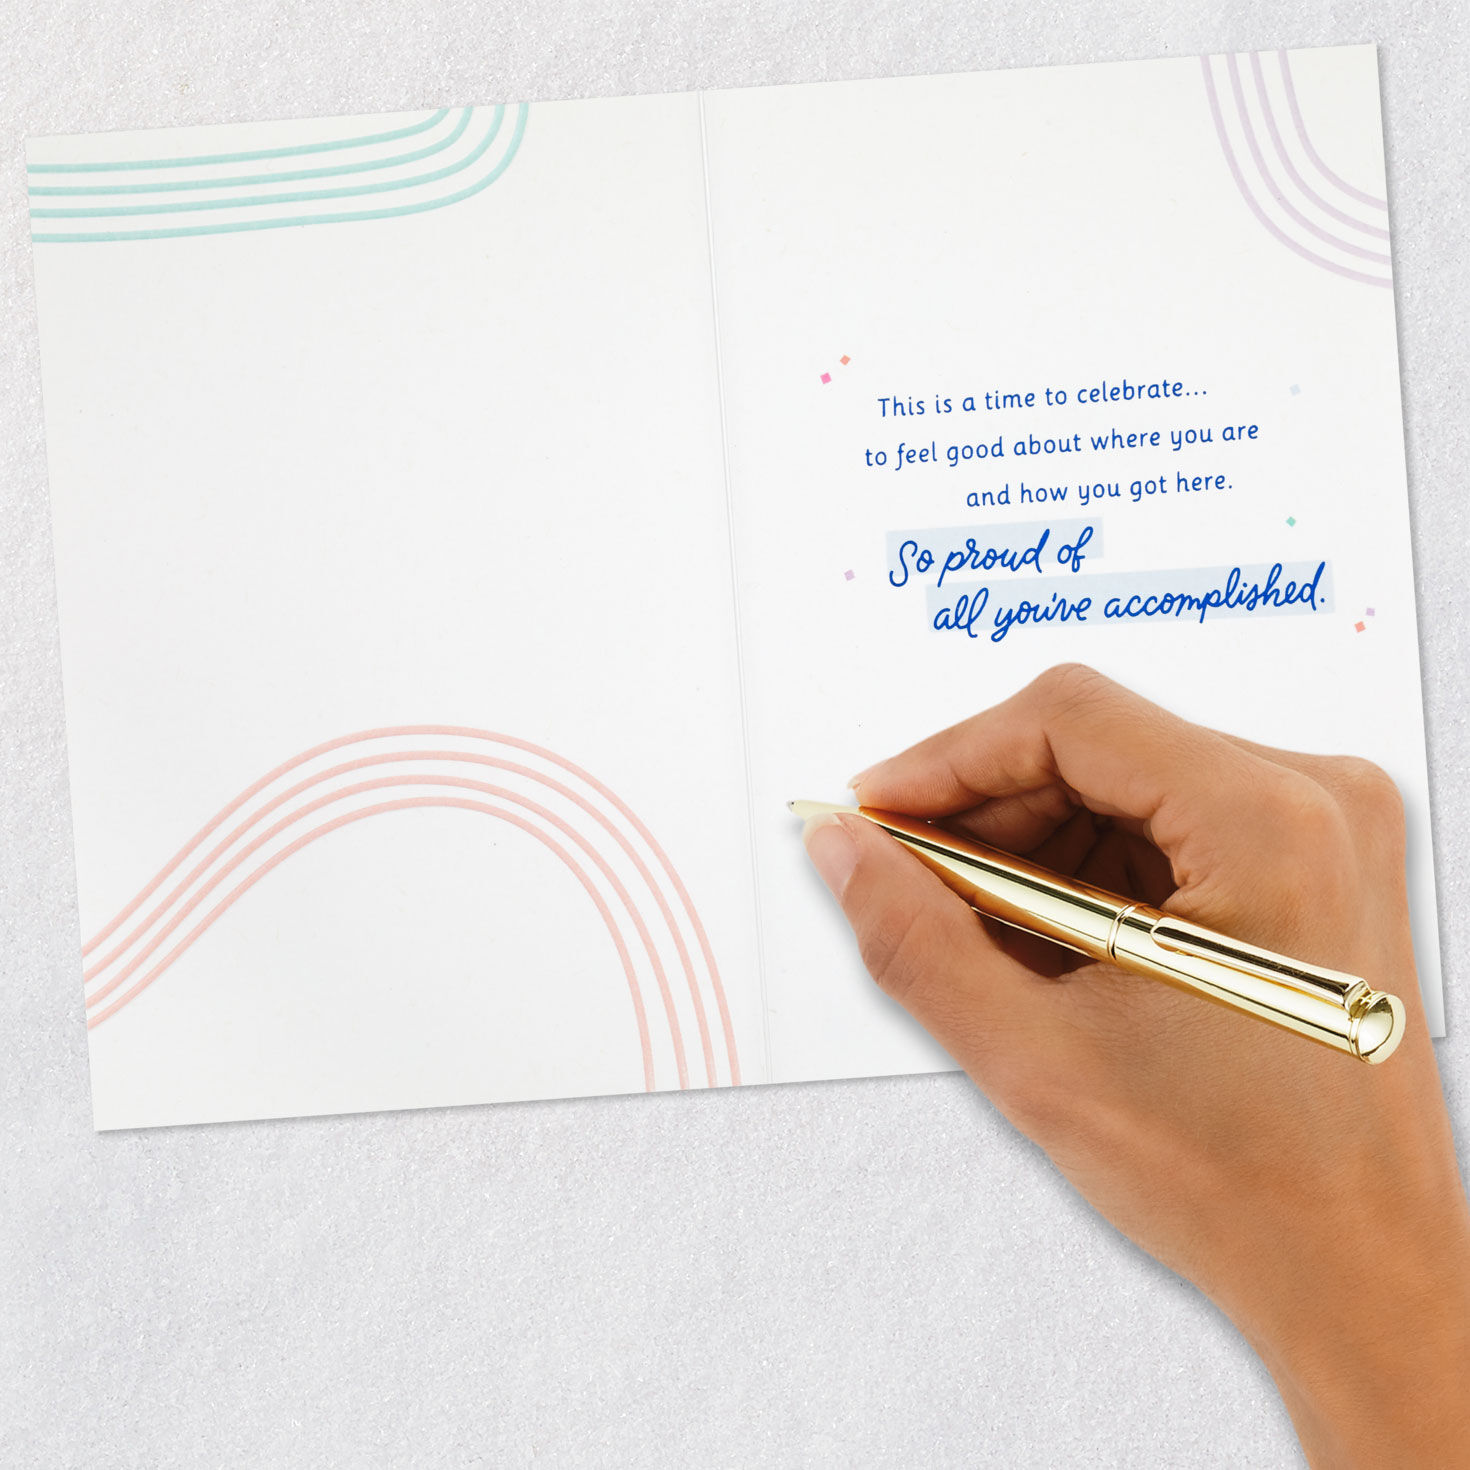 This is a time to celebrate...
to feel good about where you are
and how you got here.
So proud of
all you've accomplished.